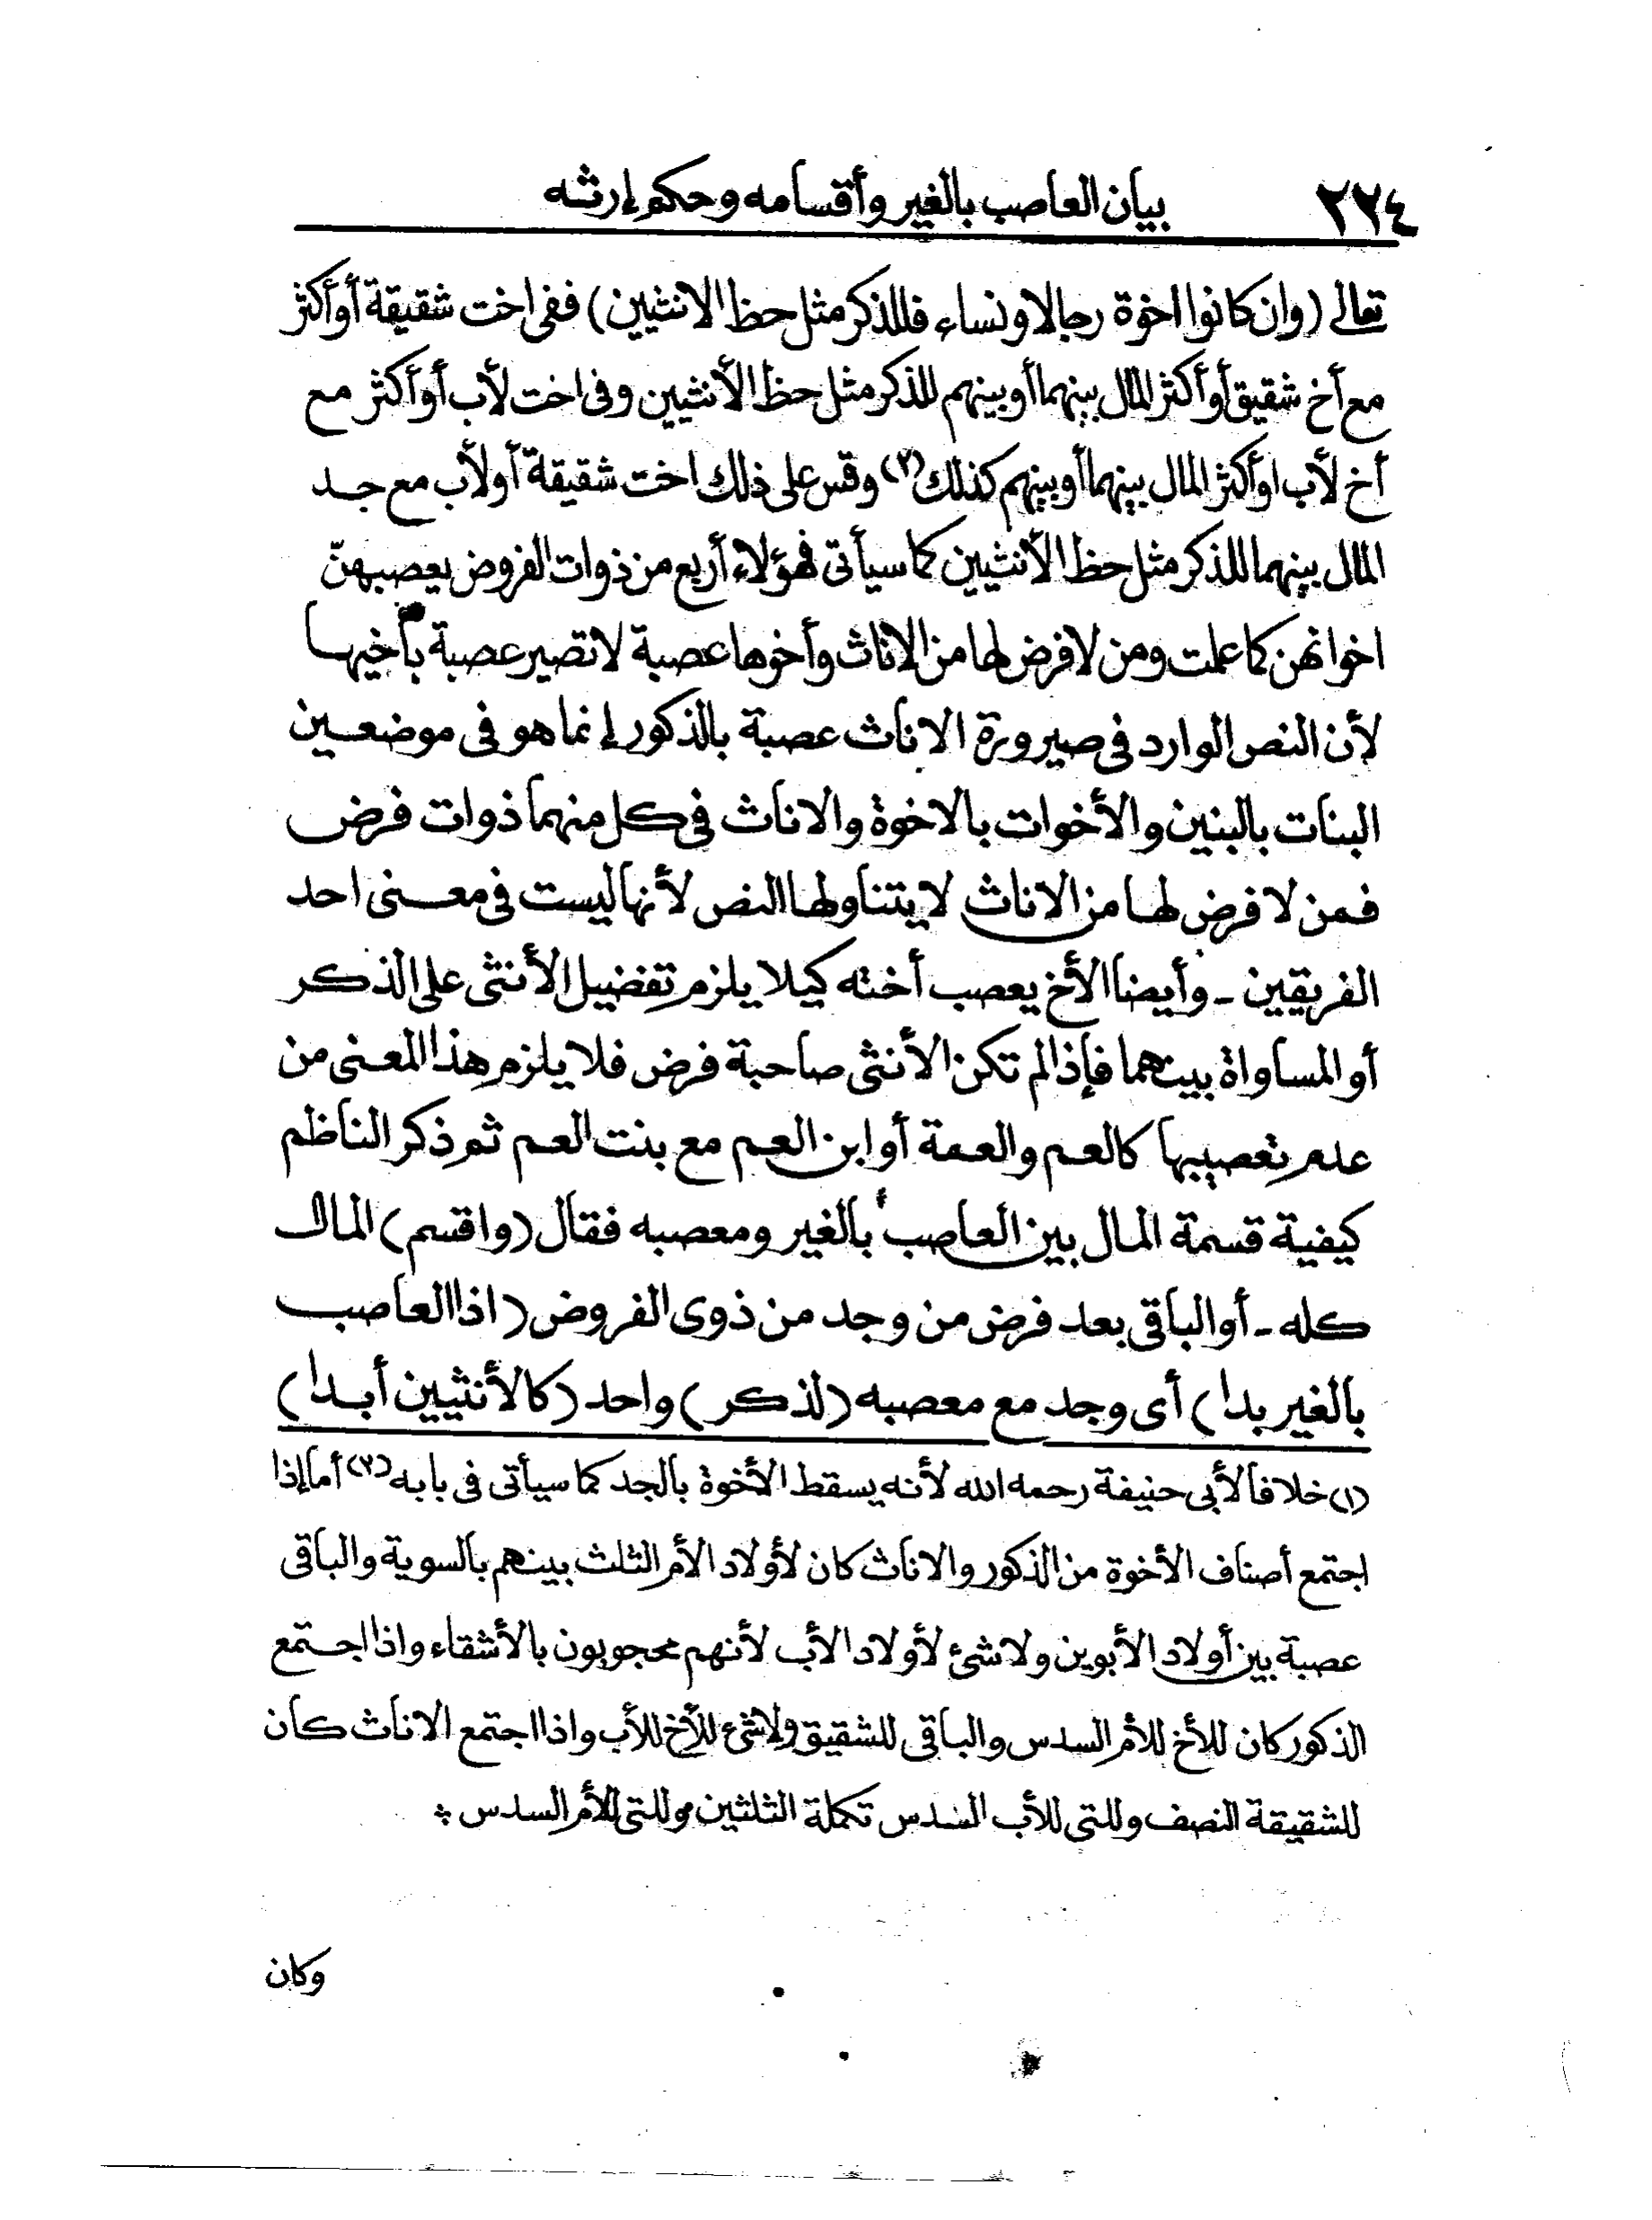 ٢٢٤ بيان العاصب بالغير وأقسامه وحكم إرثه
تعالى (وان كانوا اخوة رجالا ونساء فللذكر مثل حظ الانثيين) ففى اخت شقيقة أو أكثر
مع أخ شقيق أو أكثر المال بينهما أو بينهم للذكر مثل حظ الأنثيين وفى اخت لأب أو أكثر مع
أخ لأب او أكثر المال بينهما أو بينهم كذلك (٢) وقس على ذلك اخت شقيقة أو لأب مع جد
المال بينهما للذكر مثل حظ الأنثيين كما سيأتى فهؤلاء أربع من ذوات الفروض يعصبهنّ
اخوانهن كما علمت ومن لا فرض لها من الاناث وأخوها عصبة لا تصير عصبة بأخيها
لأن النص الوارد فى صيرورة الاناث عصبة بالذكور إنما هو فى موضعين
البنات بالبنين والأخوات بالاخوة والاناث فى كل منهما ذوات فرض
فمن لا فرض لها من الاناث لا يتناولها النص لأنها ليست فى معنى احد
الفريقين - وأيضا الأخ يعصب أخته كيلا يلزم تفضيل الأنثى على الذكر
أو المساواة بينهما فإذا لم تكن الأنثى صاحبة فرض فلا يلزم هذا المعنى من
عدم تعصيبها كالعم والعمة أو ابن العم مع بنت العم ثم ذكر الناظم
كيفية قسمة المال بين العاصب بالغير ومعصبه فقال (واقسم) المال
كله - أو الباقى بعد فرض من وجد من ذوى الفروض (اذا العاصب
بالغير بدا) أى وجد مع معصبه (لذكر) واحد (كالأنثيين أبدا)
(١) خلافا لأبى حنيفة رحمه الله لأنه يسقط الأخوة بالجد كما سيأتى فى بابه (٢) أما إذا
اجتمع أصناف الأخوة من الذكور والاناث كان لأولاد الأم الثلث بينهم بالسوية والباقى
عصبة بين أولاد الأبوين ولا شئ لأولاد الأب لأنهم محجوبون بالأشقاء واذا اجتمع
الذكور كان للأخ للأم السدس والباقى للشقيق ولا شئ للأخ للأب واذا اجتمع الاناث كان
للشقيقة النصف وللتى للأب السدس تكملة الثلثين وللتى للأم السدس ؞
وكان